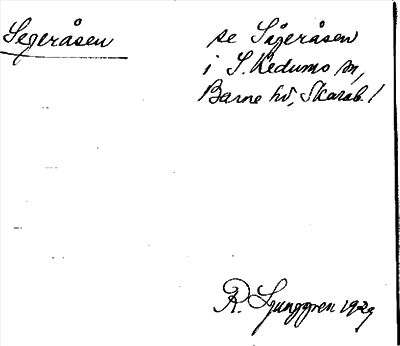 Segeråsen
se Sigeråsen
i S. Kedums sn,
Barne hd, Skarab. l
R. Ljunggren 1929